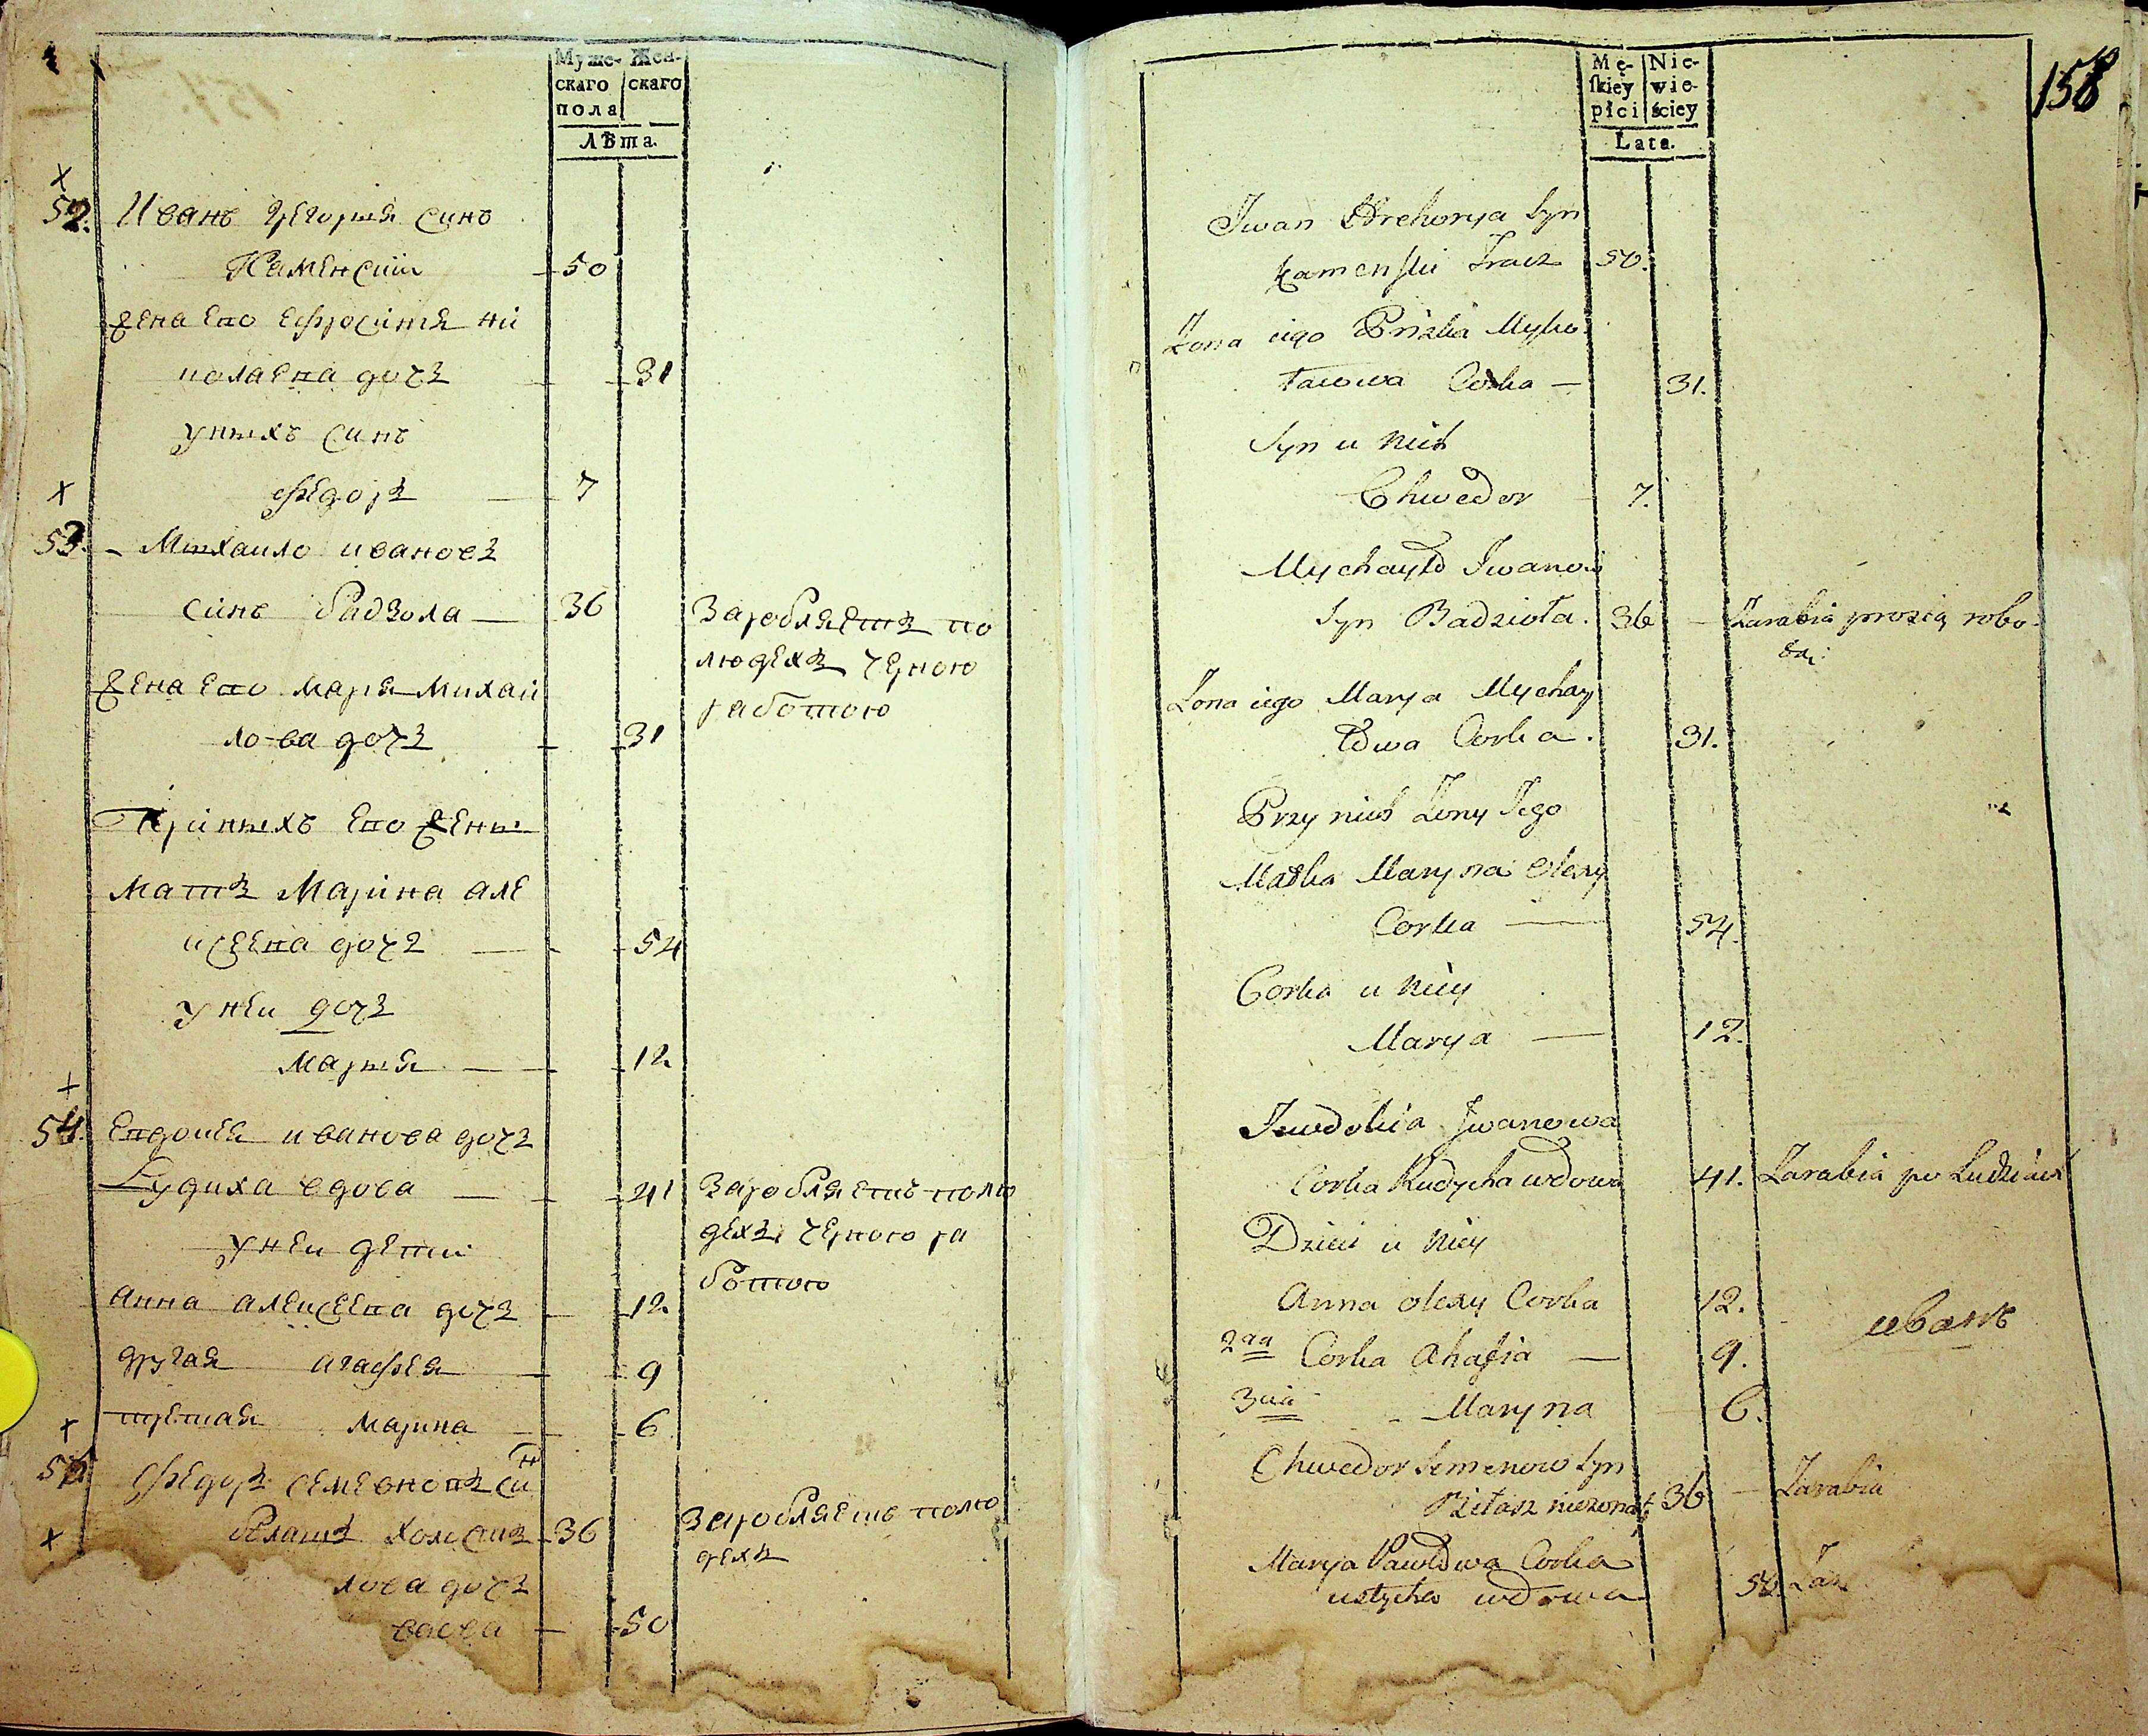 Муже- Жен-
скаго скаго
пола
Лѣта.
52. Иванъ григорья синъ
Каменский 50
жена его ефросиния ни
колаева дочь 31
у нихъ синъ
Федоръ 7
53. Михаило ивановъ
синъ бадзюла 36 Заробляетъ по
людехъ черною
работою
жена его марья михаи
лова дочь 31
При нихъ его жены
мать Марина але
ксеева дочь 54
у неи дочь
марья 12
54. Евдокия иванова дочь
Рудиха вдова 41 Заробляетъ полю
дехъ черною ра
ботою
у неи дети
Анна алексеева дочь 12
другая агафея 9
третая марина 6
Федоръ семеновъ син
36 Заробляетъ полю
дехъ
лова дочь
50
Mę- Nie-
skiey wie-
płci ściey
Lata.
158
Iwan Hrehorya Syn
Kamenski Tracz 50.
Zona iego Pryska Myko
łaiowa Corka 31.
Syn u nich
Chwedor 7.
Mychayło Iwanow
Syn Badzioła. 36 Zarabia prostą robo-
tą:
Zona iego Marya Mychay
łowa Corka. 31.
Przy nich Zony Iego
Matka Maryna Olexy
Corka 54.
Corka u niey
Marya 12.
Iewdokia Iwanowa
Corka Rudycha wdowa 41. Zarabia po Ludziach
Dzieci u niey
Anna olexy Corka 12.
иванъ
2ga Corka Ahafia 9.
3cia Maryna 6.
Chwedor Semenow Syn
nieżonaty 36 Zarabia
Marya Pawłowa Corka
wdowa 50